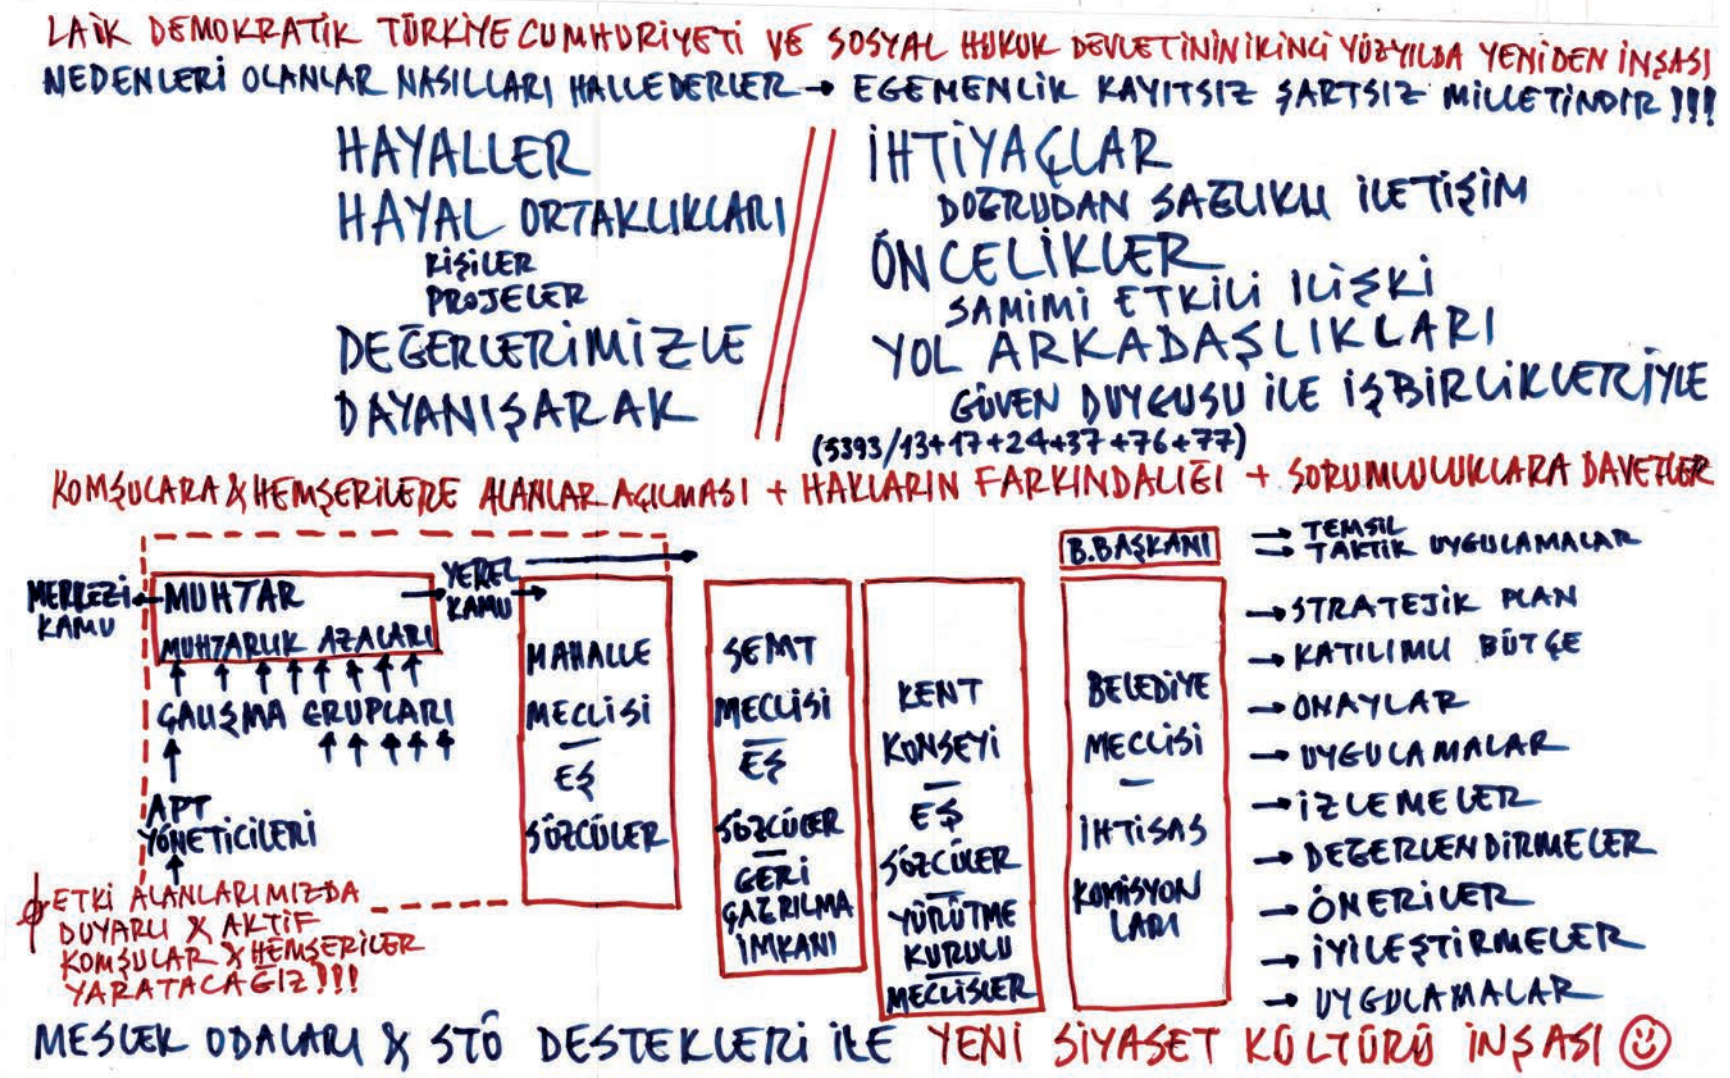 LAİK DEMOKRATİK TÜRKİYE CUMHURİYETİ VE SOSYAL HUKUK DEVLETİNİN İKİNCİ YÜZYILDA YENİDEN İNŞASI
NEDENLERİ OLANLAR NASILLARI HALLEDERLER → EGEMENLİK KAYITSIZ ŞARTSIZ MİLLETİNDİR !!!
HAYALLER
HAYAL ORTAKLIKLARI
KİŞİLER
PROJELER
DEĞERLERİMİZLE
DAYANIŞARAK
İHTİYAÇLAR
DOĞRUDAN SAĞLIKLI İLETİŞİM
ÖNCELİKLER
SAMİMİ ETKİLİ İLİŞKİ
YOL ARKADAŞLIKLARI
GÜVEN DUYGUSU İLE İŞBİRLİKLERİYLE
(5393/13+17+24+37+76+77)
KOMŞULARA & HEMŞERİLERE ALANLAR AÇILMASI + HAKLARIN FARKINDALIĞI + SORUMLULUKLARA DAVETLER
MERKEZİ
KAMU
MUHTAR
MUHTARLIK AZALARI
ÇALIŞMA GRUPLARI
APT
YÖNETİCİLERİ
YEREL
KAMU
MAHALLE
MECLİSİ
–
EŞ
SÖZCÜLER
SEMT
MECLİSİ
–
EŞ
SÖZCÜLER
–
GERİ
ÇAĞRILMA
İMKANI
KENT
KONSEYİ
–
EŞ
SÖZCÜLER
–
YÜRÜTME
KURULU
–
MECLİSLER
B.BAŞKANI
BELEDİYE
MECLİSİ
–
İHTİSAS
KOMİSYON
LARI
→ TEMSİL
→ TAKTİK UYGULAMALAR
→ STRATEJİK PLAN
→ KATILIMLI BÜTÇE
→ ONAYLAR
→ UYGULAMALAR
→ İZLEMELER
→ DEĞERLENDİRMELER
→ ÖNERİLER
→ İYİLEŞTİRMELER
→ UYGULAMALAR
ETKİ ALANLARIMIZDA
DUYARLI & AKTİF
KOMŞULAR & HEMŞERİLER
YARATACAĞIZ !!!
MESLEK ODALARI & STÖ DESTEKLERİ İLE YENİ SİYASET KÜLTÜRÜ İNŞASI